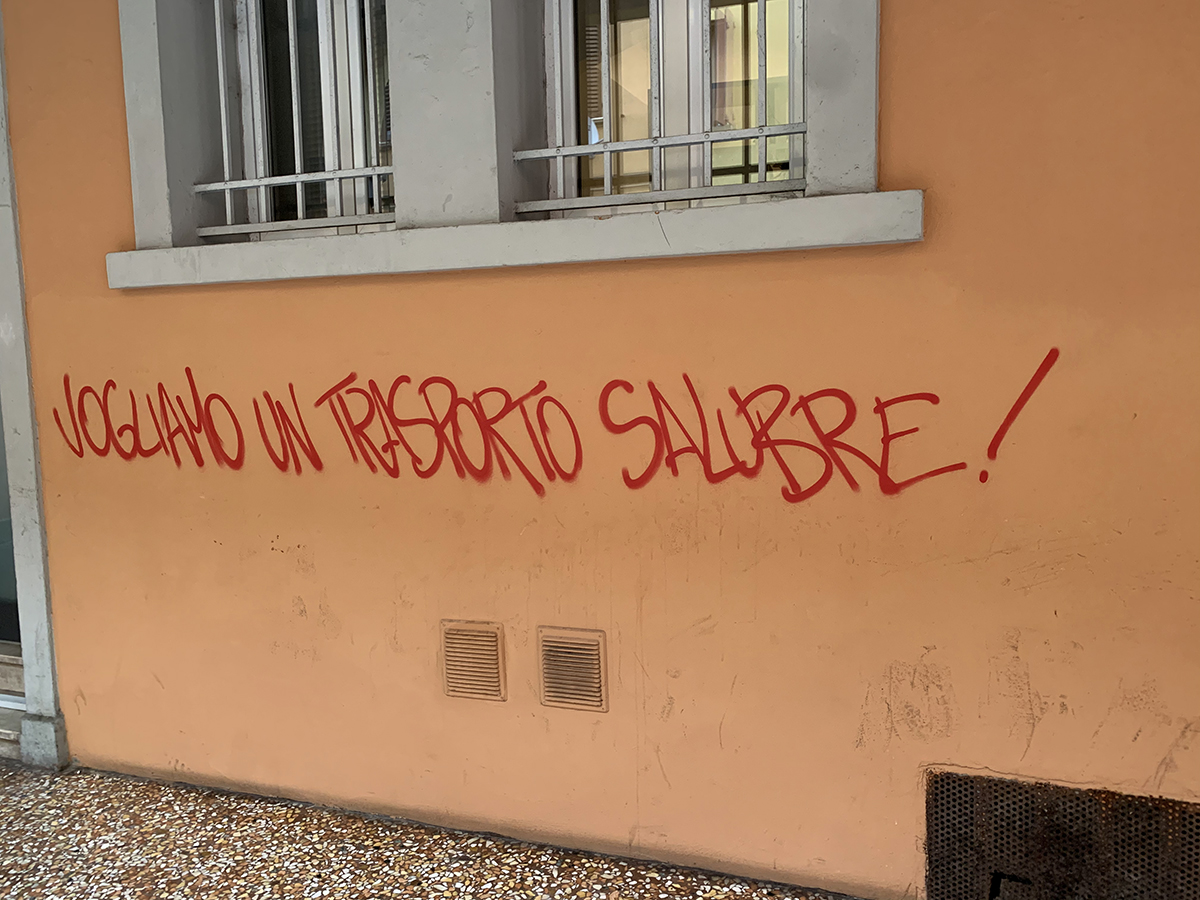 VOGLIAMO UN TRASPORTO SALUBRE!